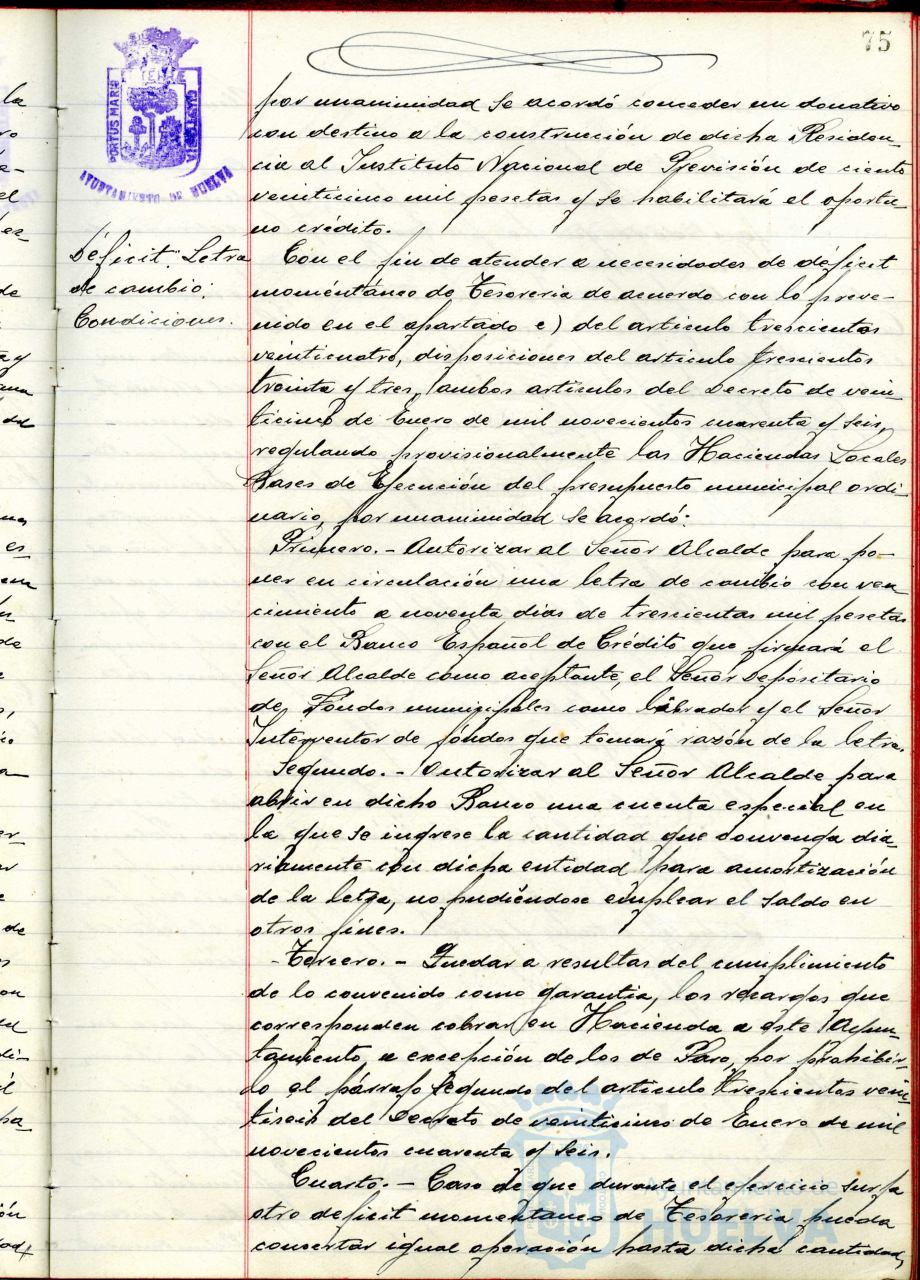 75
PORTUS MARIS
AYUNTAMIENTO DE HUELVA
por unanimidad se acordó conceder un donativo
con destino a la construcción de dicha Residen-
cia al Instituto Nacional de Previsión de ciento
veinticinco mil pesetas y se habilitará el oportu-
no crédito.
Déficit. Letra
de cambio.
Condiciones.
Con el fin de atender a necesidades de déficit
momentáneo de Tesoreria de acuerdo con lo preve-
nido en el apartado e) del articulo trescientos
veinticuatro, disposiciones del articulo trescientos
treinta y tres, ambos articulos del Decreto de vein-
ticinco de Enero de mil novecientos cuarenta y seis,
regulando provisionalmente las Haciendas Locales
Bases de Ejecución del presupuesto municipal ordi-
nario, por unanimidad se acordó:
Primero.- Autorizar al Señor Alcalde para po-
ner en circulación una letra de cambio con ven
cimiento a noventa dias de trescientas mil pesetas
con el Banco Español de Crédito que firmará el
Señor Alcalde como aceptante, el Señor Depósitario
de Fondos municipales como librador y el Señor
Interventor de fondos que tomará razón de la letra.
Segundo.- Autorizar al Señor Alcalde para
abrir en dicho Banco una cuenta especial en
la que se ingrese la cantidad que convenga dia-
riamente con dicha entidad para amortización
de la letra, no pudiéndose emplear el saldo en
otros fines.
-Tercero.- Quedar a resultas del cumplimiento
de lo convenido como garantia, los recargos que
corresponden cobrar en Hacienda a este Ayun-
tamiento, a excepción de los de Paro, por prohibir-
lo el párrafo segundo del articulo trescientos vein-
tiseis del Decreto de veinticinco de Enero de mil
novecientos cuarenta y seis.
Cuarto.- Caso de que durante el ejercicio surja
otro deficit momentaneo de Tesoreria pueda
concertar igual operación hasta dicha cantidad,
Ayuntamiento de
HUELVA